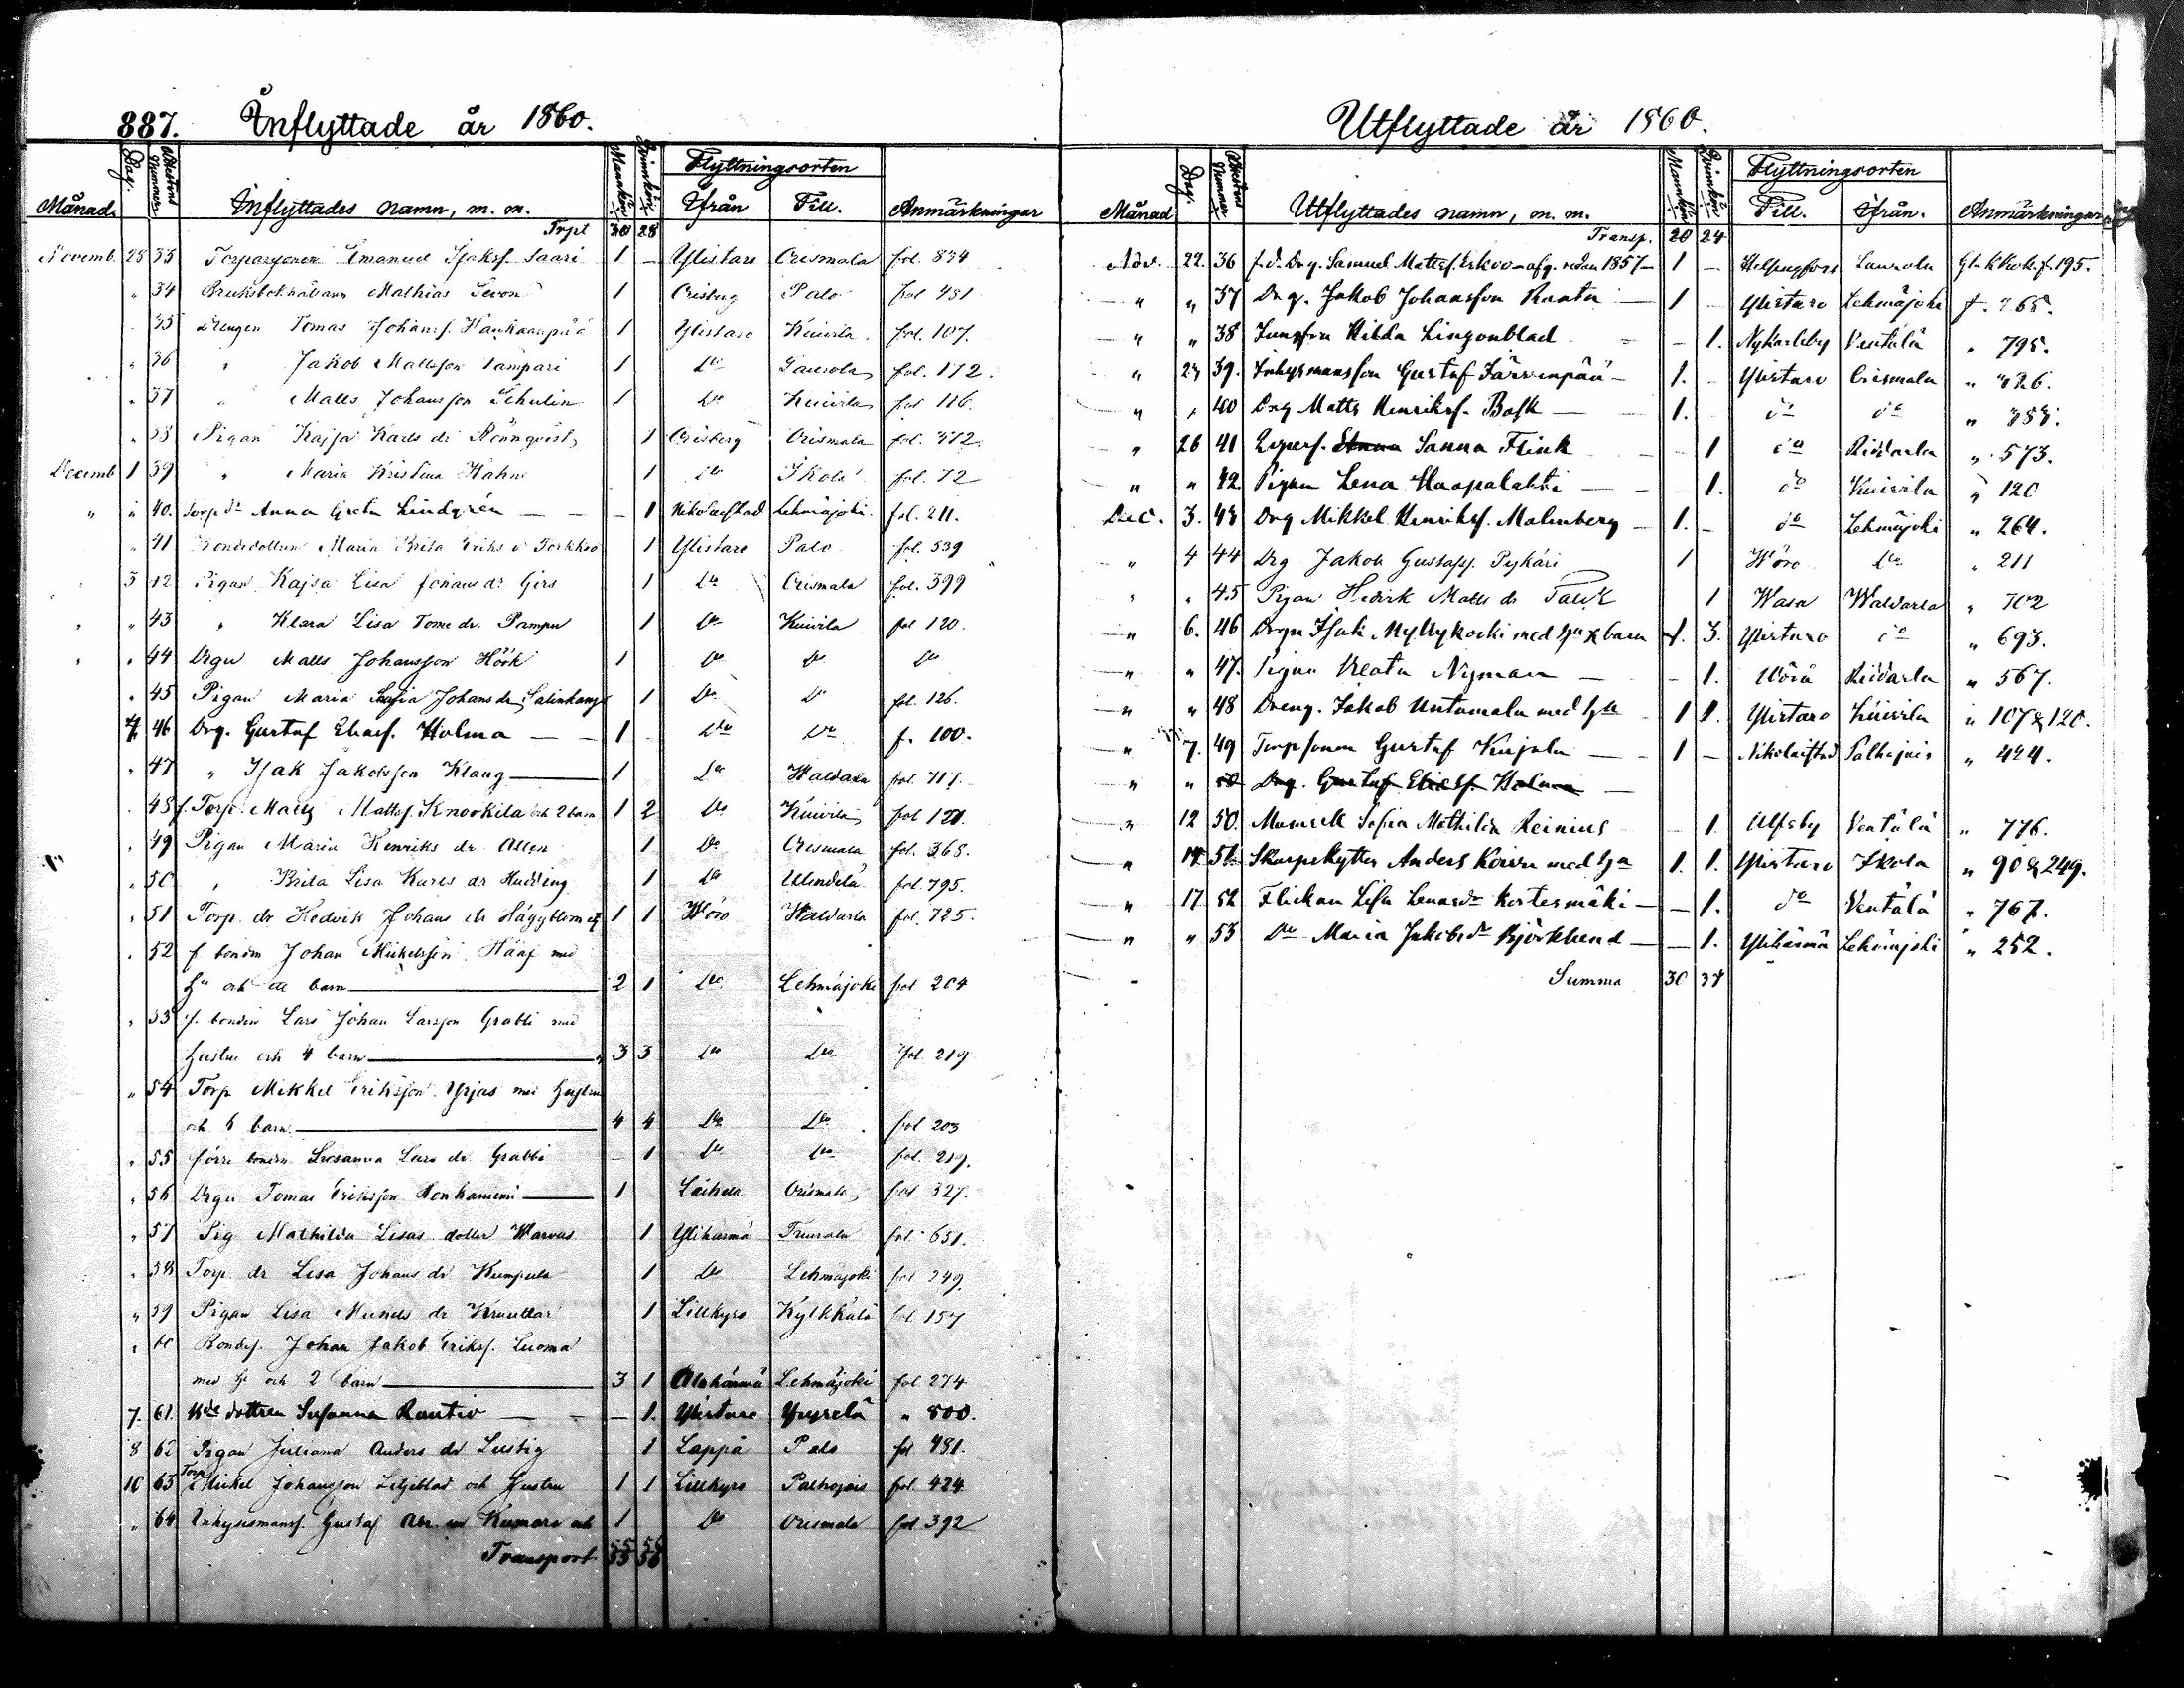 887. Inflyttade år 1860.
Månad. Dag. Attestens Nummer Inflyttades namn, m. m. Mankön. Qvinkön. Flyttningsorten Ifrån Till. Anmärkningar
Trpt 30 28
Novemb. 28 33 Torparsonen Emanuel Isaksf. Saari 1 – Ylistaro Orismala fol. 834
" 34 Bruksbokhållaren Mathias 1 Orisberg Palo fol 481
35 Drengen Tomas Johansf. Haukaanpää 1 Ylistaro Kuivila fol. 107.
" 36 " Jakob Mattsson Tampari 1 Do Laurola fol. 172.
" 37 " Matts Johansson Schulin 1 Do Kuivila fol 116.
" 38 Pigan Kajsa Karls dr Rönnqvist 1 Orisberg Orismala fol. 372
Decemb 1 39 " Maria Kristina Hahn 1 Do Ikola fol. 72
" " 40. Torp dr Anna Greta Lindgrén – – – 1 Nikolaistad Lehmäjoki fol. 211.
" 41 Bondedottren Maria Brita Eriks d Torkko 1 Ylistaro Palo fol. 539
3 42 Pigan Kajsa Lisa Johans dr Girs 1 Do Orismala fol. 399
" " 43 " Klara Lisa Tome dr. Pampu 1 Do Kuivila fol 120.
" " 44 Drgn Matts Johansson Höök 1 Do Do Do
" 45 Pigan Maria Sofia Johans dr 1 Do Do fol. 126.
7 46 Drg. Gustaf Eliasf. Holma – – 1 – Do Do f. 100.
" 47 " Isak Jakobsson Klang 1 Do Waldarla fol. 711.
48 f. Torp. Matts Mattsf. Knookila och 2 barn 1 2 Do Kuivila fol 121.
" 49 Pigan Maria Henriks dr Allen 1 Do Orismala fol. 368.
" 50 " Brita Lisa Karls dr Hudding 1 Do fol. 795.
" 51 Torp. dr Hedvik Johans dr Häggblom 1 1 Wörå Waldarla fol. 725.
" 52 f bonden Johan Mickelsson Haaf med
hu och ett barn 2 1 Do Lehmäjoki fol 204
" 53 f. bonden Lars Johan Larsson Grabbi med
hustru och 4 barn 3 3 Do Do fol. 219
" 54 Torp Mikkel Eriksson Yrjas med hustru
och 6 barn. 4 4 Do Do fol 203
" 55 förre bonden Susanna Lars dr Grabbi – 1 Do Do fol. 219.
" 56 Drgn Tomas Eriksson Honkaniemi 1 Laihela Orismala fol 327.
" 57 Pig Mathilda Lisas dotter Warvas 1 Ylihärmä fol. 651.
" 58 Torp. dr Lisa Johans dr Kumpula 1 Do Lehmäjoki fol 249.
" 59 Pigan Lisa 1 Lillkyro Kylkkälä fol 157
" 60 Bondes. Johan Jakob Eriksf. Luoma
med hu och 2 barn 3 1 Alahärmä Lehmäjoki fol 274
7. 61. Bde dottren Susanna Rautio – – – 1. Ylistaro Yryselä " 500.
8 62 Pigan Juliana Anders dr Lustig 1 Lappå Palo fol 481.
10 63 Torp Mickel Johansson Liljeblad och Hustru 1 1 Lillkyro Palhojais fol. 424
" 64 Inhysesmansf. Gustaf 1 Do Orismala fol 392
Transport 55 56
Utflyttade år 1860.
Månad Dag. Attestens Nummer Utflyttades namn, m. m. Mankön Qvinkön Flyttningsorten Till. Ifrån. Anmärkningar
Transp. 20 24
Nov. 22. 36 f. d. Drg. Samuel Mattsf. Erkoo – afg. redan 1857 – 1 – Helsingfors Laurola f. 195.
" " 37 Drg. Jakob Johansson Raatu – 1 – Ylistaro Lehmäjoki f. 265.
" " 38 Jungfru Hilda Lingonblad – – 1. Nykarleby Ventälä " 795.
" 23 39. Inhysmansson Gustaf Järvenpää – 1. – Ylistaro Orismala " 326.
" " 40 Drg Matts Henriksf. Bosk – 1. do do " 383.
" 26 41 Sanna Flink – 1 do Riddarla " 573.
" " 42. Pigan Lena Haapalahti – – 1. do Kuivila " 120
Dec. 3. 43 Drg Mikkel Henriksf. Malmberg – 1. – do Lehmäjoki " 264.
" 4 44 Drg Jakob Gustafsf. Pykäri 1 Wörå Do " 211
" " 45 Pigan Hedvik Matts dr 1 Wasa Waldarla " 702
" 6. 46 Drgn Isak Myllykoski med hu & barn 1. 3. Ylistaro do " 693.
" " 47. Pigan Beata Nyman – – 1. Wörå Riddarla " 567.
" " 48 Dreng. Jakob Untamala med hu 1 1. Ylistaro Kuivila " 107 & 120.
" 7. 49 Torpsonen Gustaf Kujala – 1 – Nikolaistad Palhojais " 424.
" " 50 Drg. Gustaf Eliasf. Holma –
" 12 50. Mamsell Sofia Mathilda Reinius – 1. Ulfsby Ventälä " 776.
" 14 51. Skarpskytten Anders Koivu med hu 1. 1. Ylistaro Ikola " 90 & 249.
" 17 52 Flickan Lisa Lenasdr Kortesmäki – – 1. do Ventälä " 767.
" " 53 Do Maria Jakobsdr Björkbend – – 1. Ylihärmä Lehmäjoki " 252.
Summa 30 37